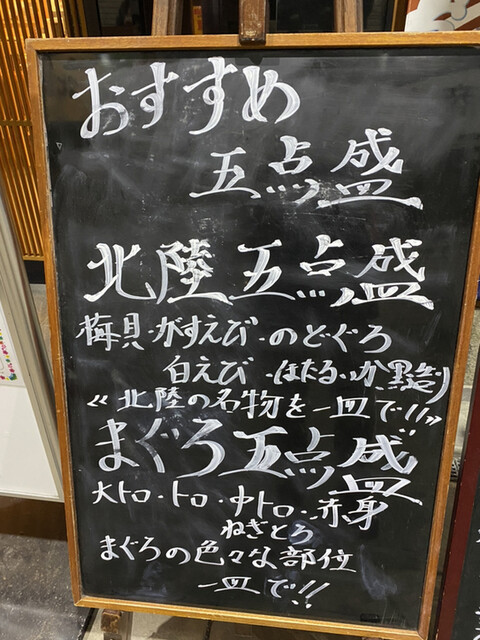 おすすめ
五点盛
北陸五点盛
梅貝・がすえび・のどぐろ
白えび・ほたるいか黒造り
“北陸の名物を一皿で!!”
まぐろ五点盛
大トロ・トロ・中トロ・赤身
ねぎとろ
まぐろの色々な部位
一皿で!!